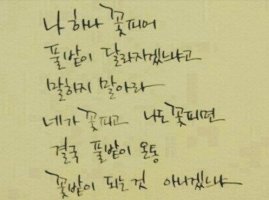 나 하나 꽃피어
풀밭이 달라지겠느냐고
말하지 말아라
네가 꽃피고 나도 꽃피면
결국 풀밭이 온통
꽃밭이 되는것 아니겠느냐